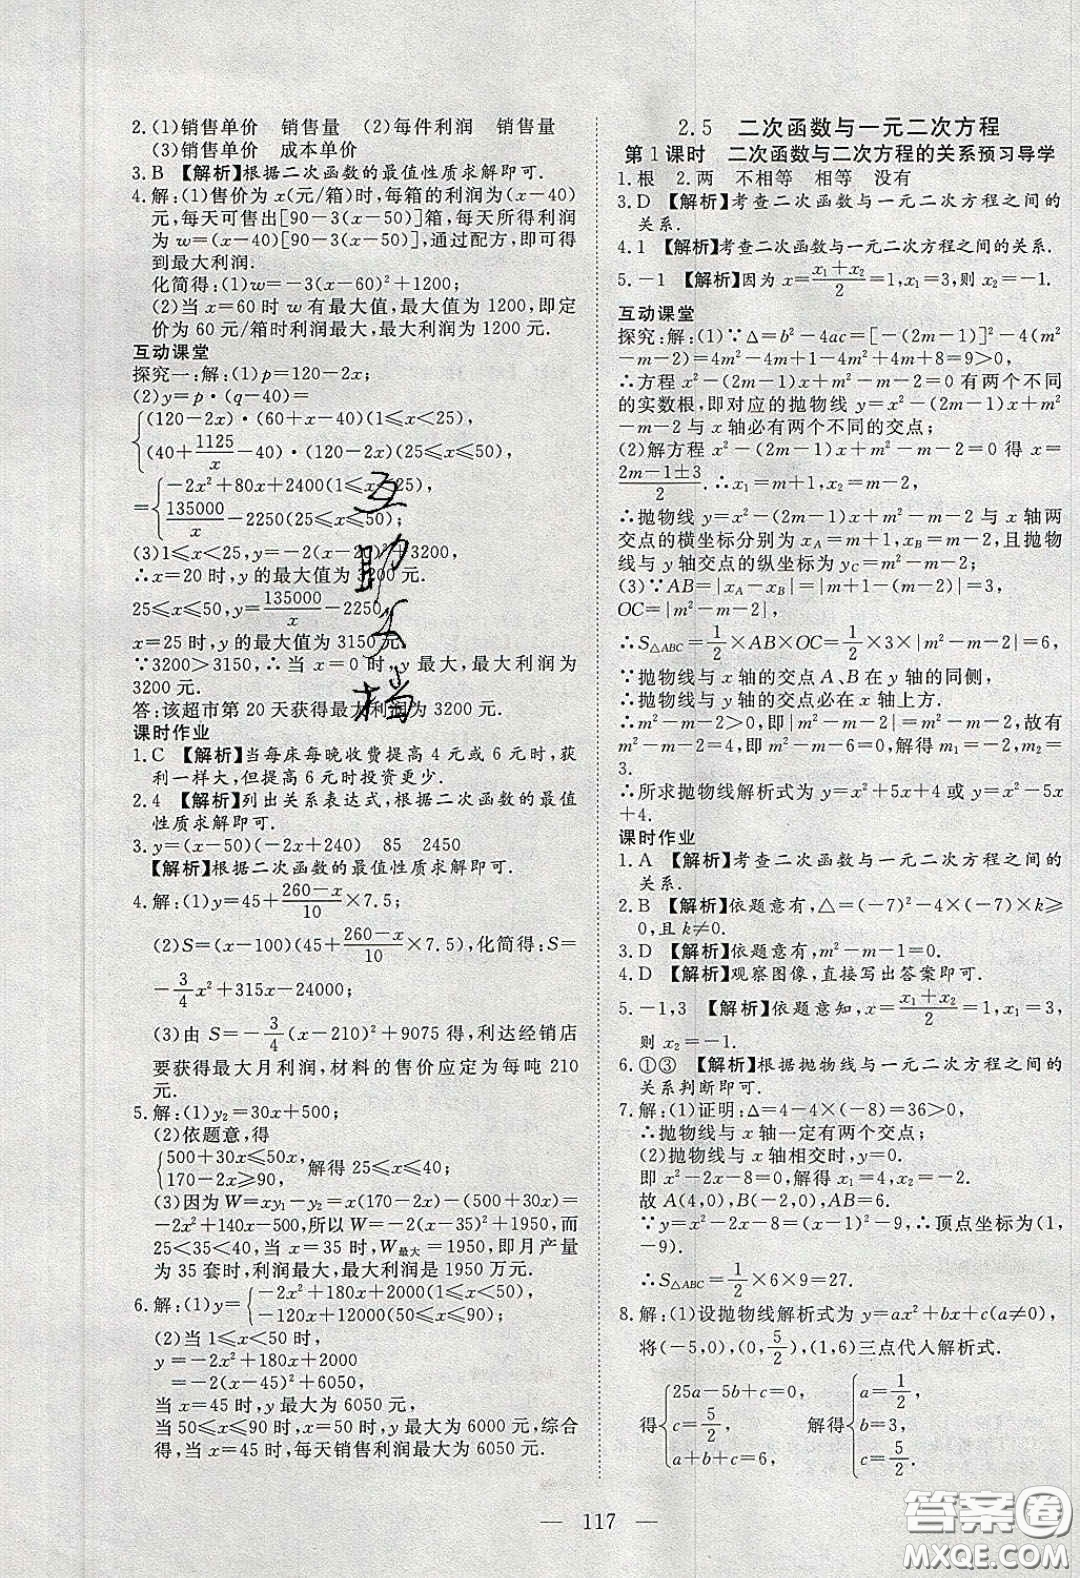 2.(1)销售单价 销售量 (2)每件利润 销售量
(3)销售单价 成本单价
3.B 【解析】根据二次函数的最值性质求解即可.
4.解:(1)售价为 x(元/箱)时,每箱的利润为(x-40)
元,每天可售出[90-3(x-50)]箱,每天所得利润
为 w=(x-40)[90-3(x-50)],通过配方,即可得
到最大利润.
化简得:(1)w=-3(x-60)²+1200;
(2)当 x=60 时 w 有最大值,最大值为 1200,即定
价为 60 元/箱时利润最大,最大利润为 1200 元.
互动课堂
探究一:解:(1)p=120-2x;
(2)y=p·(q-40)=
{(120-2x)·(60+x-40)(1≤x<25),
(40+1125/x-40)·(120-2x)(25≤x≤50),
={-2x²+80x+2400(1≤x<25),
135000/x-2250(25≤x≤50);
(3)1≤x<25,y=-2(x-20)²+3200,
∴x=20 时,y 的最大值为 3200 元.
25≤x≤50,y=135000/x-2250,
x=25 时,y 的最大值为 3150 元.
∵3200>3150,∴当 x=0 时,y 最大,最大利润为
3200 元.
答:该超市第 20 天获得最大利润为 3200 元.
课时作业
1.C 【解析】当每床每晚收费提高 4 元或 6 元时,获
利一样大,但提高 6 元时投资更少.
2.4 【解析】列出关系表达式,根据二次函数的最值
性质求解即可.
3.y=(x-50)(-2x+240) 85 2450
【解析】根据二次函数的最值性质求解即可.
4.解:(1)y=45+260-x/10×7.5;
(2)S=(x-100)(45+260-x/10×7.5),化简得:S=
-3/4x²+315x-24000;
(3)由 S=-3/4(x-210)²+9075 得,利达经销店
要获得最大月利润,材料的售价应定为每吨 210
元.
5.解:(1)y₂=30x+500;
(2)依题意,得
{500+30x≤50x,
170-2x≥90, 解得 25≤x≤40;
(3)因为 W=xy₁-y₂=x(170-2x)-(500+30x)=
-2x²+140x-500,所以 W=-2(x-35)²+1950,而
25<35<40,当 x=35 时,W最大=1950,即月产量
为 35 套时,利润最大,最大利润是 1950 万元.
6.解:(1)y={-2x²+180x+2000(1≤x<50)
-120x+12000(50≤x≤90);
(2)当 1≤x<50 时,
y=-2x²+180x+2000
=-2(x-45)²+6050,
当 x=45 时,y 最大为 6050 元,
当 50≤x≤90 时,x=50 时,y 最大为 6000 元,综合
得,当 x=45 时,每天销售利润最大为 6050 元.
2.5 二次函数与一元二次方程
第1课时 二次函数与二次方程的关系预习导学
1.根 2.两 不相等 相等 没有
3.D 【解析】考查二次函数与一元二次方程之间的
关系.
4.1 【解析】考查二次函数与一元二次方程之间的关系.
5.-1 【解析】因为 x=x₁+x₂/2=1,x₁=3,则 x₂=-1.
互动课堂
探究:解:(1)∵Δ=b²-4ac=[-(2m-1)]²-4(m²
-m-2)=4m²-4m+1-4m²+4m+8=9>0,
∴方程 x²-(2m-1)x+m²-m-2=0 有两个不同
的实数根,即对应的抛物线 y=x²-(2m-1)x+m²
-m-2 与 x 轴必有两个不同的交点;
(2)解方程 x²-(2m-1)x+m²-m-2=0 得 x=
2m-1±3/2.∴x₁=m+1,x₂=m-2,
∴抛物线 y=x²-(2m-1)x+m²-m-2 与 x 轴两
交点的横坐标分别为 xA=m+1,xB=m-2,且抛物
线与 y 轴交点的纵坐标为 yC=m²-m-2;
(3)∵AB=|xA-xB|=|m+1-(m-2)|=3,
OC=|m²-m-2|,
∴S△ABC=1/2×AB×OC=1/2×3×|m²-m-2|=6,
∵抛物线与 x 轴的交点 A、B 在 y 轴的同侧,
∴抛物线与 y 轴的交点必在 x 轴上方.
∴m²-m-2>0,即|m²-m-2|=m²-m-2,故有
m²-m-2=4,即 m²-m-6=0,解得 m₁=-2,m₂=
3.
∴所求抛物线解析式为 y=x²+5x+4 或 y=x²-5x
+4.
课时作业
1.A 【解析】考查二次函数与一元二次方程之间的
关系.
2.B 【解析】依题意有,△=(-7)²-4×(-7)×k≥
0,且 k≠0.
3.D 【解析】依题意有,m²-m-1=0.
4.D 【解析】观察图像,直接写出答案即可.
5.-1,3 【解析】依题意知,x=x₁+x₂/2=1,x₁=3,
则 x₂=-1.
6.①③ 【解析】根据抛物线与一元二次方程之间的
关系判断即可.
7.解:(1)证明:Δ=4-4×(-8)=36>0,
∴抛物线与 x 轴一定有两个交点;
(2)抛物线与 x 轴相交时,y=0.
即 x²-2x-8=0,解得 x=4,x₂=-2.
故 A(4,0),B(-2,0),AB=6.
∵y=x²-2x-8=(x-1)²-9,∴顶点坐标为(1,
-9).
∴S△ABC=1/2×6×9=27.
8.解:(1)设抛物线解析式为 y=ax²+bx+c(a≠0),
将(-5,0),(0,5/2),(1,6)三点代入解析式.
得{25a-5b+c=0,
c=5/2,
a+b+c=6, 解得{a=1/2,
b=3,
c=5/2.
互助文档
117
答案圈
MXQE.COM